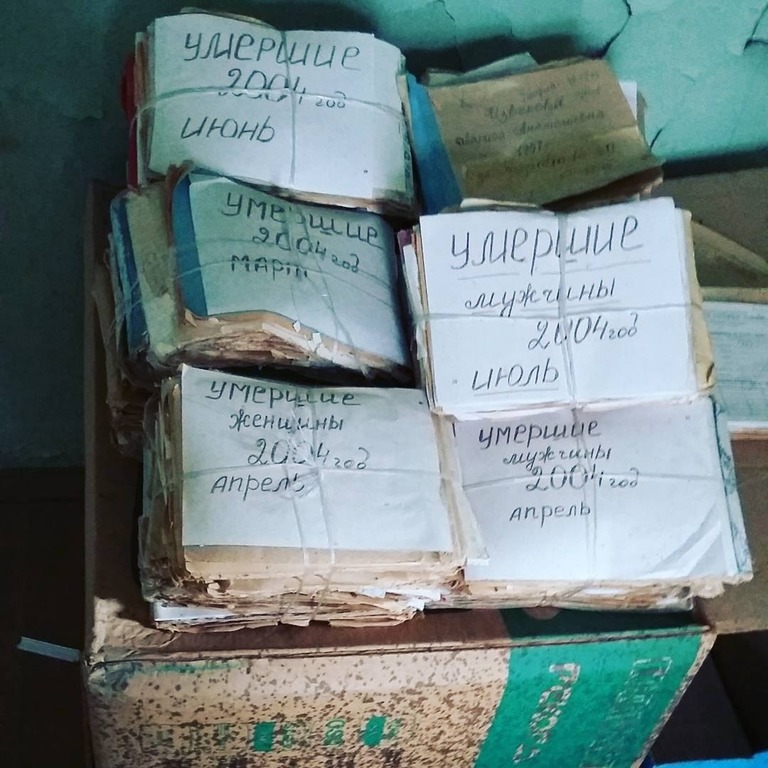 УМЕРШИЕ
2004 год
ИЮНЬ
УМЕРШИЕ
2004 год
МАРТ
УМЕРШИЕ
мужчины
2004 год
ИЮЛЬ
УМЕРШИЕ
женщины
2004 год
АПРЕЛЬ
УМЕРШИЕ
мужчины
2004 год
АПРЕЛЬ